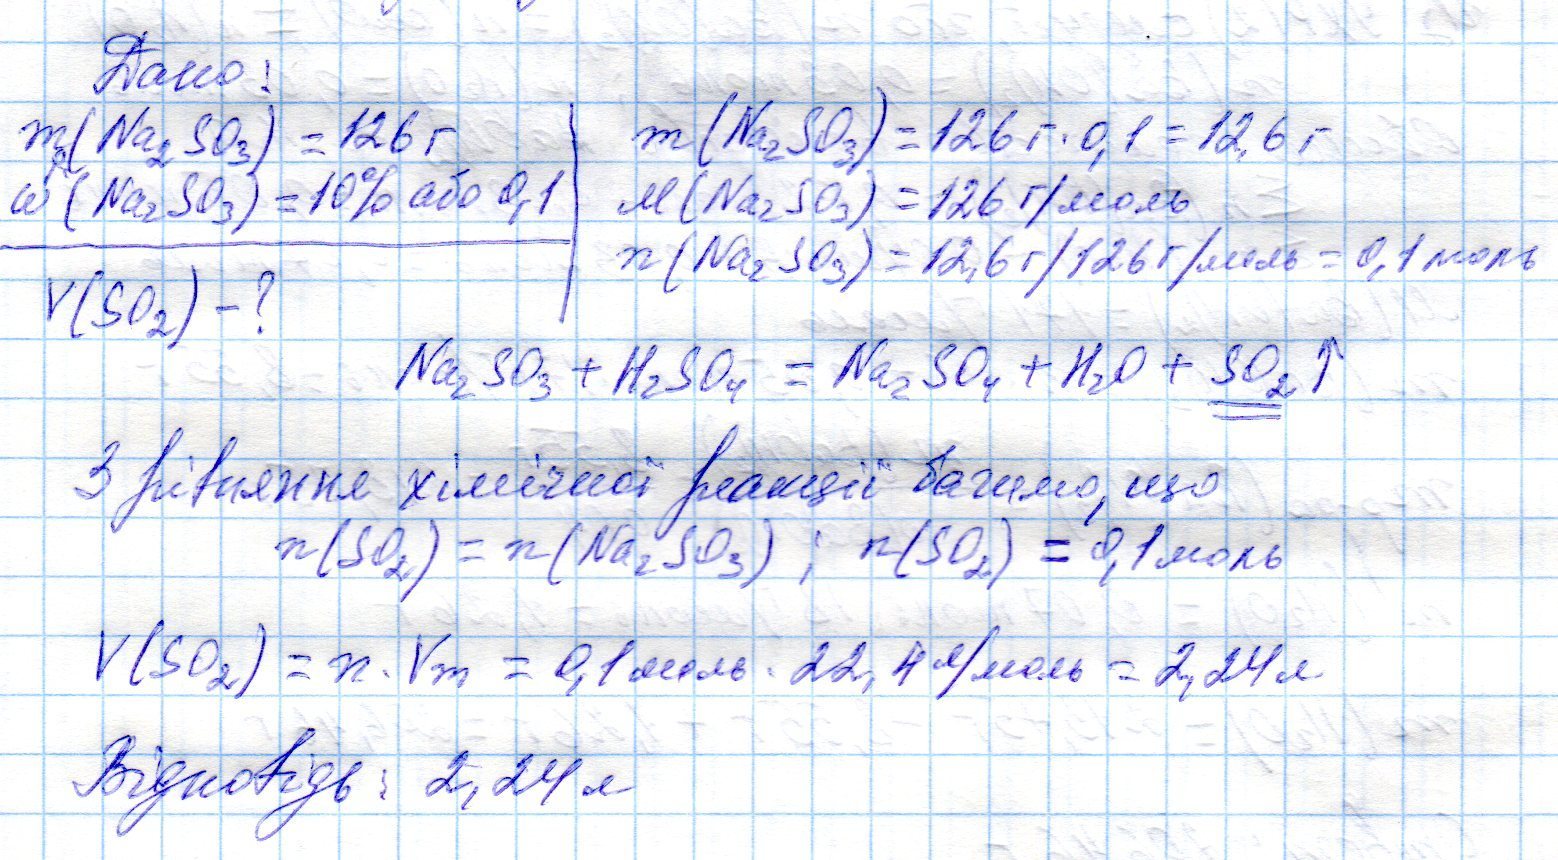 Дано:
mр(Na₂SO₃) = 126 г
ω(Na₂SO₃) = 10% або 0,1
V(SO₂) - ?
m(Na₂SO₃) = 126 г · 0,1 = 12,6 г
M(Na₂SO₃) = 126 г/моль
n(Na₂SO₃) = 12,6 г/126 г/моль = 0,1 моль
Na₂SO₃ + H₂SO₄ = Na₂SO₄ + H₂O + SO₂↑
З рівняння хімічної реакції бачимо, що
n(SO₂) = n(Na₂SO₃) ; n(SO₂) = 0,1 моль
V(SO₂) = n · Vm = 0,1 моль · 22,4 л/моль = 2,24 л
Відповідь: 2,24 л